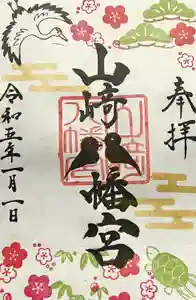 奉拝
山﨑八幡宮
令和五年一月一日